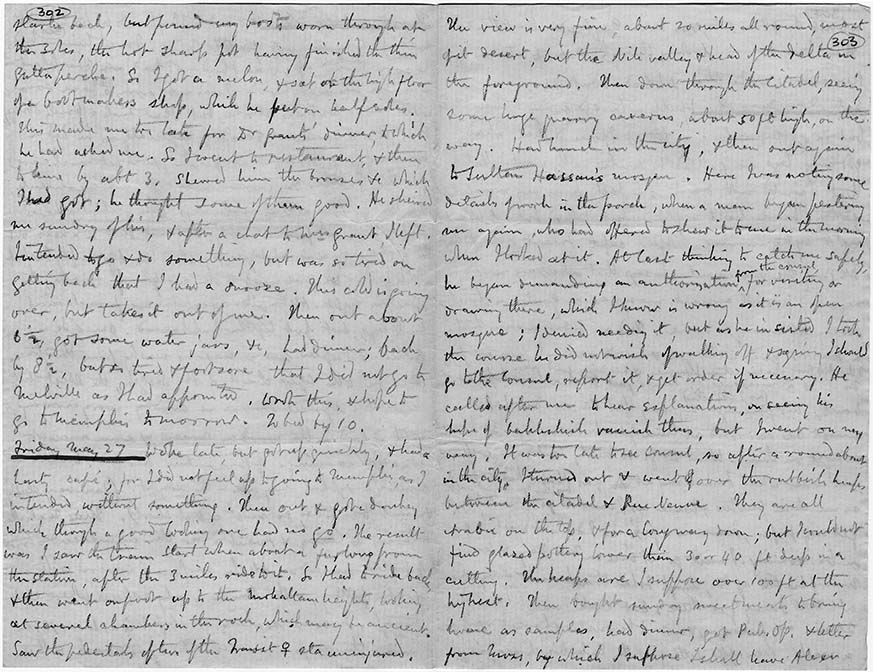 302
back, but found my boots worn through at
the soles, the hot sharp having finished the thin
gutta percha. So I got a melon, & sat on the high floor
of a bootmakers shop, while he put on half soles.
This made me too late for Dr Grants' dinner, to which
he had asked me. So I went to restaurant & then
to him by abt 3. Shewed him the bronzes &c which
I had got; he thought some of them good. He shewed
me sundry of his, & after a chat to Mrs Grant, I left.
Intended to go & do something, but was so tired on
getting back that I had a snooze. This cold is going
over, but takes it out of me. Then out about
6½, got some water jars, &c, had dinner; back
by 8½, but so tired & footsore that I did not go to
Melville as I had appointed. Wrote this, & hope to
go to Memphis tomorrow. To bed by 10.
Friday May 27 Woke late but got up quickly, & had a
hasty café; for I did not feel up to going to Memphis as I
intended without something. Then out & got a donkey
which though a good looking one had no go. The result
was I saw the train start when about a furlong from
the station, after the 3 miles ride to it. So I had to ride back
& then went on foot up to the Mokattam heights, looking
at several chambers in the rock, which may be ancient.
Saw the pedestals of the Transit ♀ sta uninjured.
303
The view is very fine, about 20 miles all round, most
of it desert, but the Nile valley & head of the Delta in
the foreground. Then down through the Citadel, seeing
some huge quarry caverns, about 50 ft high, on the
way. Had lunch in the city, & then out again
to Sultan Hassan's mosque. Here I was noting some
details of work in the porch, when a man began pestering
me again, who had offered to shew it to me in the morning
when I looked at it. At last thinking to catch me safely,
he began demanding an authorisation from the consul, for visiting or
drawing there, which I knew is wrong as it is an open
mosque; I denied needing it, but as he insisted I took
the course he did not wish of walking off & saying I should
go to the Consul, report it, & get order if necessary. He
called after me to hear explanations, on seeing his
hope of bakhshish vanish thus, but I went on my
way. It was too late to see consul, so after a round about
in the city, I turned out & went over the rubbish heaps
between the citadel & Rue Neuve. They are all
Arabic on the top, & for a long way down; but I could not
find glazed pottery lower than 30 or 40 ft deep in a
cutting. The heaps are I suppose over 100 ft at the
highest. Then bought sundry sweetmeats to bring
home as samples, had dinner, got Pub. Op. & letter
from , by which I suppose I shall leave Alexn